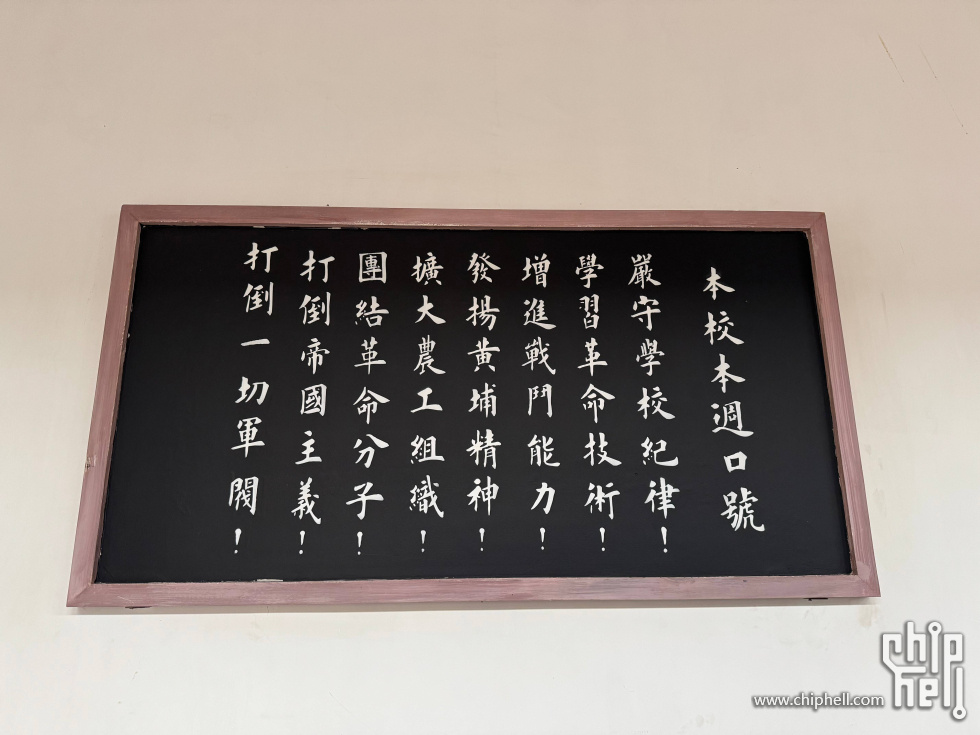 本校本週口號
嚴守學校紀律！
學習革命技術！
增進戰鬥能力！
發揚黃埔精神！
擴大農工組織！
團結革命分子！
打倒帝國主義！
打倒一切軍閥！
www.chiphell.com
chip
hell